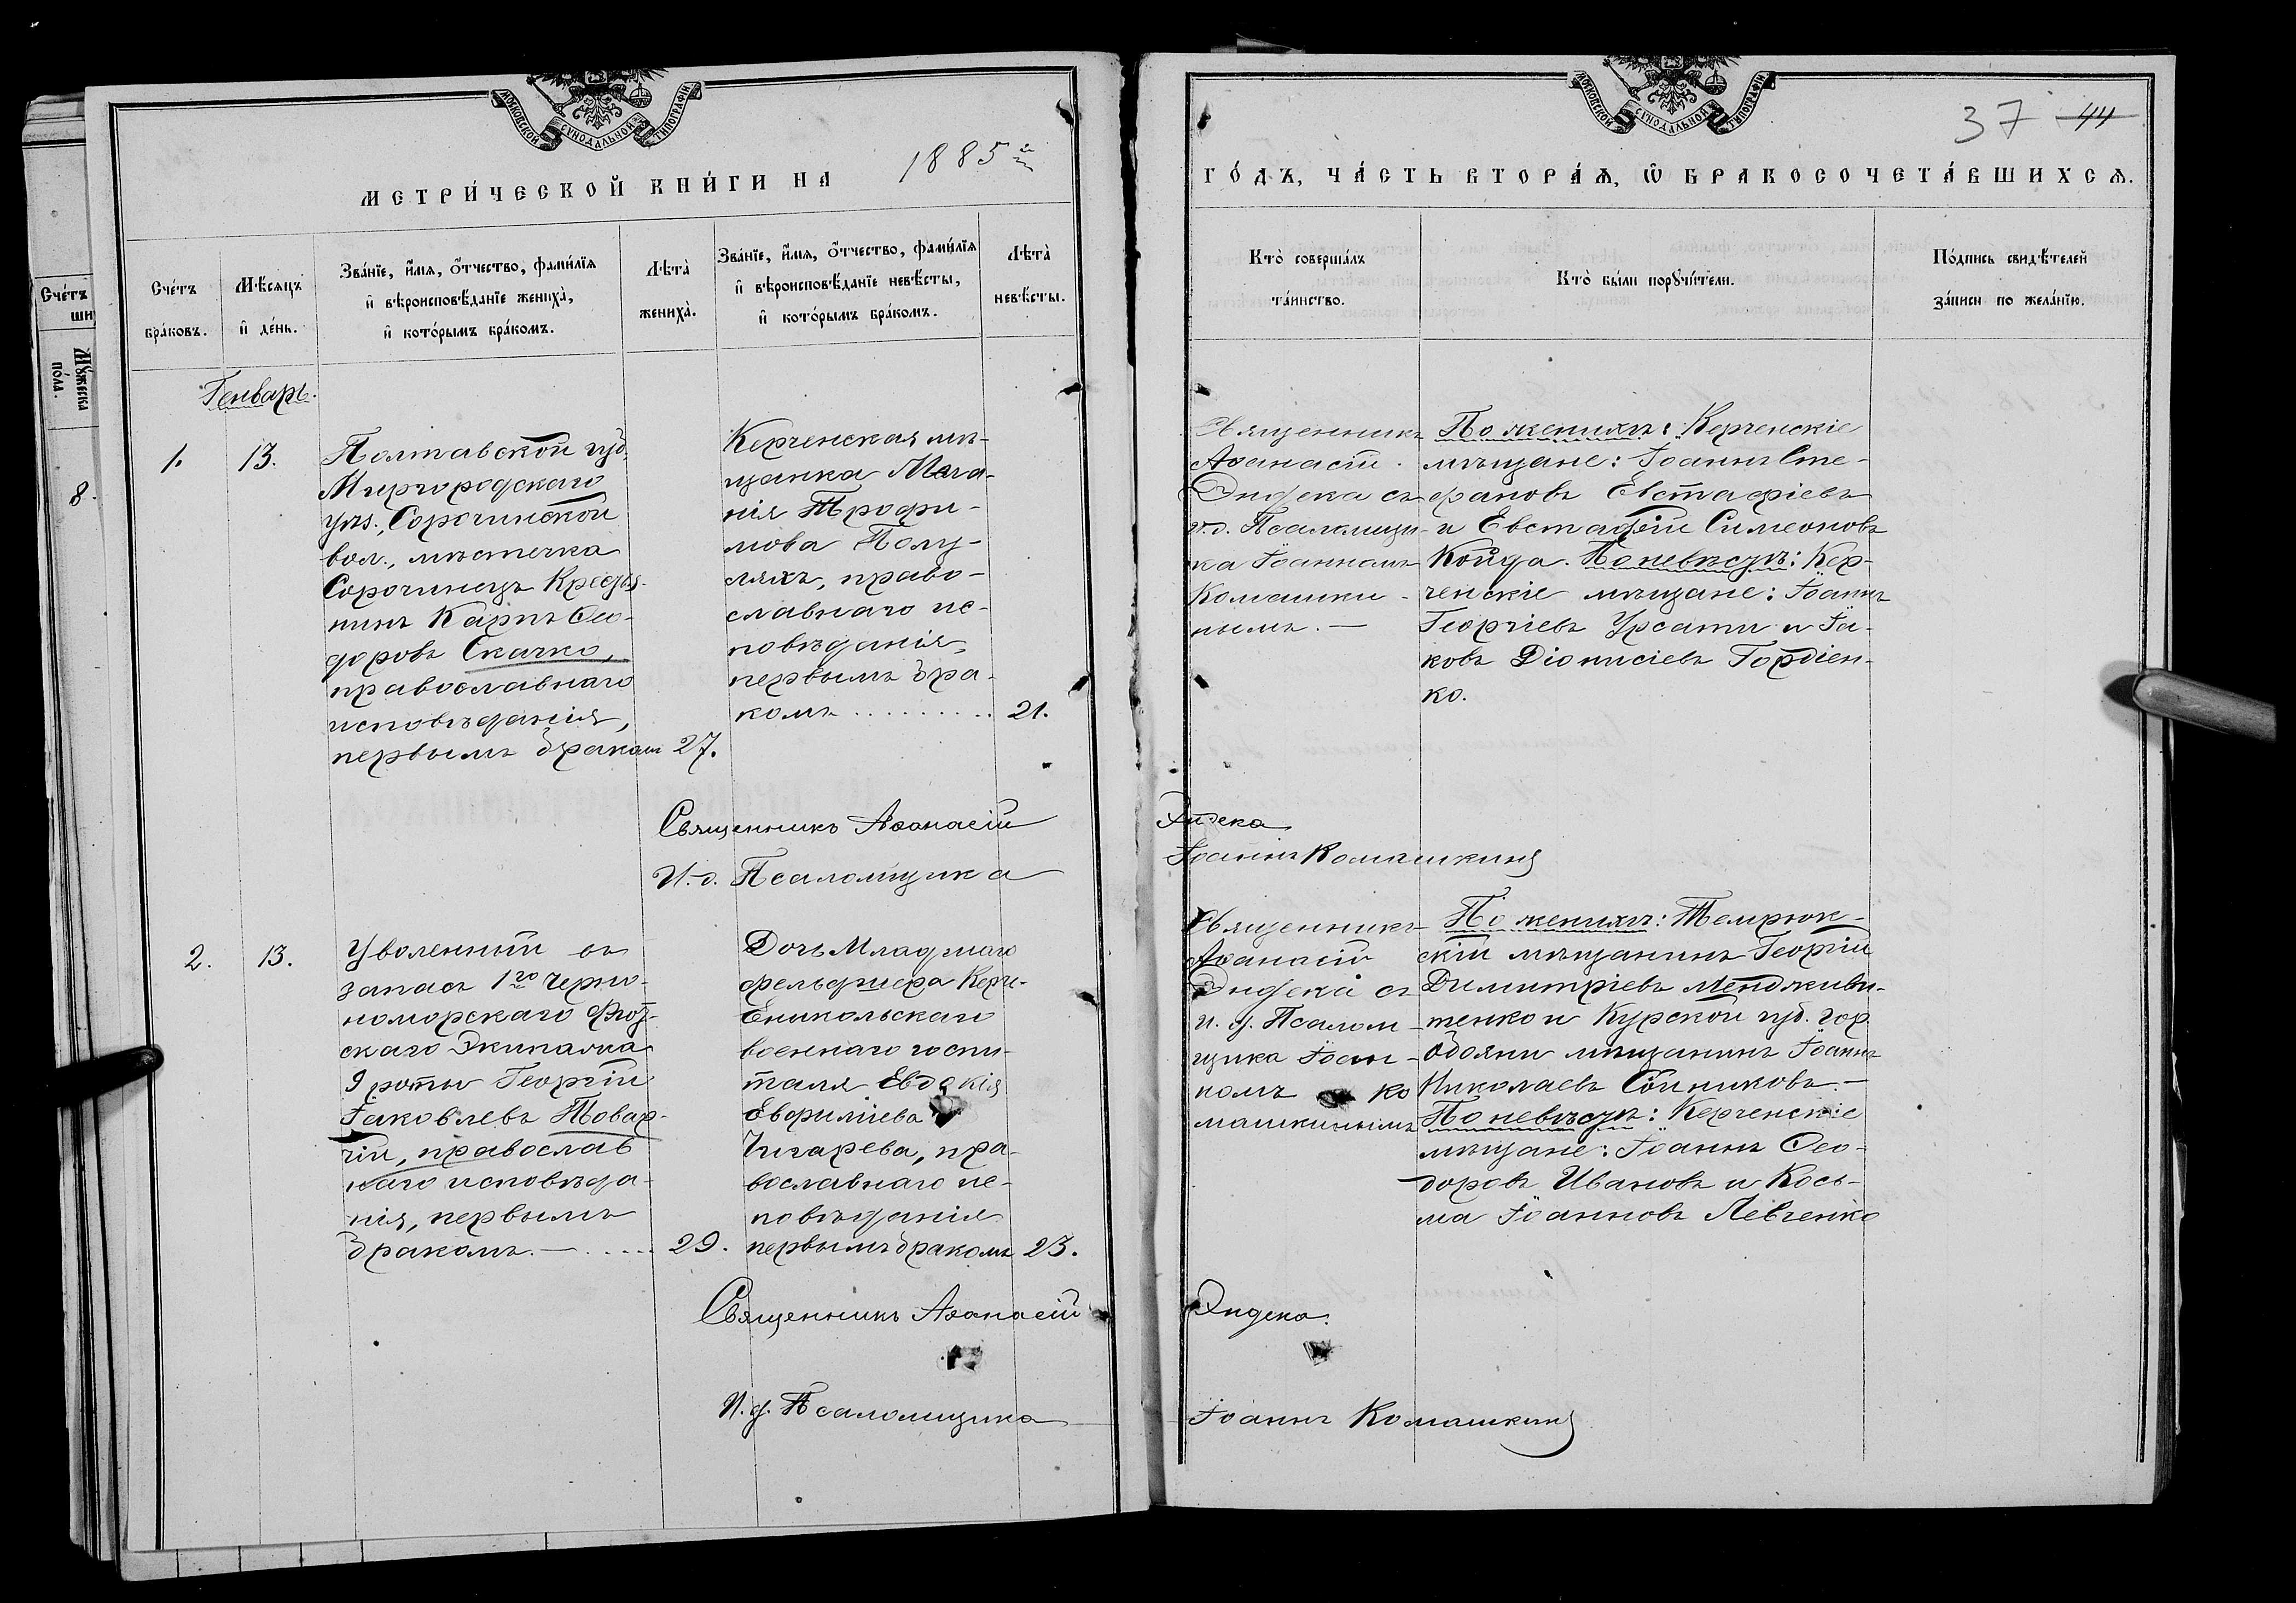 МОСКОВСКОЙ СѴНОДАЛЬНОЙ ТИПОГРАФІИ
МЕТРИ́ЧЕСКОЙ КНИ́ГИ НА 1885 г.
Сче́тъ бра́ковъ.
Мѣ́сяцъ и҆ де́нь.
Зва́нїе, и҆́мя, о҆́тчество, фами́лїя
и҆ вѣроисповѣ́данїе жениха̀,
и҆ кото́рымъ бра́комъ.
Лѣта̀
жениха̀.
Зва́нїе, и҆́мя, о҆́тчество, фами́лїя
и҆ вѣроисповѣ́данїе невѣ́сты,
и҆ кото́рымъ бра́комъ.
Лѣта̀
невѣ́сты.
Сче́тъ
Мꙋ́жеска
по́ла.
8
Генварь.
1. 13.
Полтавской губ.
Миргородскаго
уѣз., Сорочинской
вол., мѣстечка
Сорочинецъ Крестья-
нинъ Карпъ Ѳео-
доровъ Скачко,
православнаго
исповѣданія,
первымъ бракомъ 27.
Керченская мѣ-
щанка Мела-
нія Трофи-
мова Полу-
ляхъ, право-
славнаго ис-
повѣданія,
первымъ бра-
комъ . . . . . . . . . 21.
Священникъ Аѳанасій
И. д. Псаломщика
2. 13.
Уволенный въ
запасъ 1го Черно-
номорскаго Флот-
скаго Экипажа
9 роты Георгій
Іаковлевъ Товар-
чій, православ
наго исповѣда-
нія, первымъ
бракомъ. — . . . . . 29.
Дочь Младшаго
фельдшера Керч-
Еникольскаго
военнаго госпи-
таля Евдокія
Евфиміева
Чигарева, пра-
вославнаго ис-
повѣданія
первымъ бракомъ 23.
Священникъ Аѳанасій
И. д. Псаломщика
МОСКОВСКОЙ СѴНОДАЛЬНОЙ ТИПОГРАФІИ
37 44
ГО́ДЪ, ЧА́СТЬ ВТОРА́Ѧ, Ѽ БРАКОСОЧЕТА́ВШИХСѦ.
Кто̀ соверша́лъ
та́инство.
Кто̀ бы́ли порꙋчи́тели.
По́дпись свидѣ́телей
за́писи по жела́нїю.
Священникъ
Аѳанасій
Эндека съ
и. д. Псаломщи-
ка Іоанномъ
Комашки-
нымъ. —
По женихѣ: Керченскіе
мѣщане: Іоаннъ Сте-
фановъ Евстафіевъ
и Евстафій Симеоновъ
Койда. По невѣстѣ: Кер-
ченскіе мѣщане: Іоаннъ
Георгіевъ Урсати и Іа-
ковъ Діонисіевъ Гордіен-
ко.
Эндека
Іоаннъ Комашкинъ
Священникъ
Аѳанасій
Эндека съ
и. д. Псалом-
щика Іоан-
номъ Ко
машкинымъ
По женихѣ: Темрюк-
скій мѣщанинъ Георгій
Димитріевъ Мендживи-
тенко и Курской губ. гор.
Обояни мѣщанинъ Іоаннъ
Николаевъ Сойниковъ. —
По невѣстѣ: Керченскіе
мѣщане: Іоаннъ Ѳео-
доровъ Ивановъ и Кось-
ма Іоанновъ Левченко
Эндека.
Іоаннъ Комашкинъ